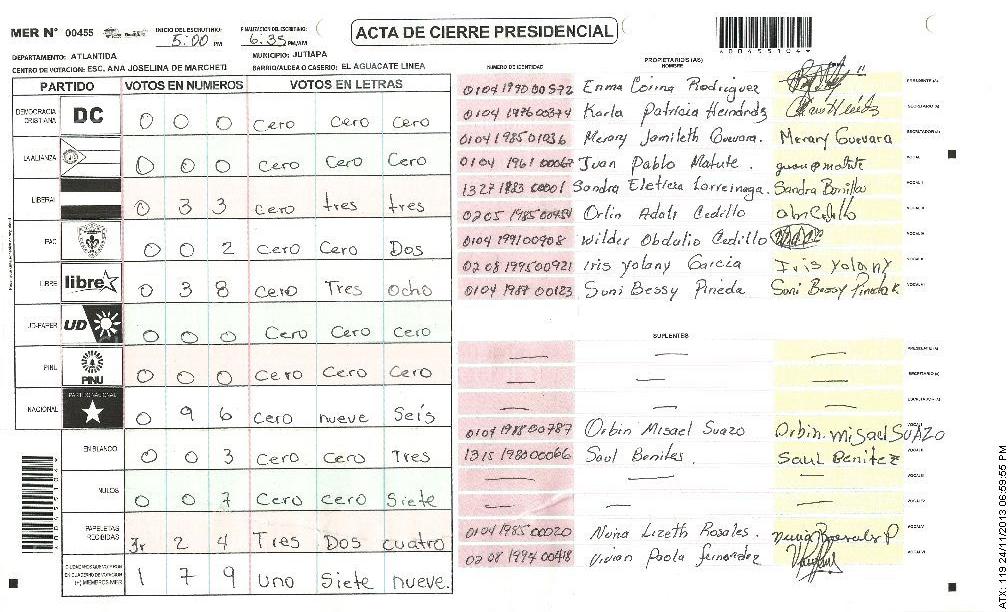 MER N° 00455 INICIO DEL ESCRUTINIO: 5:00 PM FINALIZACION DEL ESCRUTINIO: 6:35 PM/AM ACTA DE CIERRE PRESIDENCIAL
DEPARTAMENTO: ATLANTIDA MUNICIPIO: JUTIAPA
CENTRO DE VOTACION: ESC. ANA JOSELINA DE MARCHETI BARRIO/ALDEA O CASERIO: EL AGUACATE LINEA
PARTIDO VOTOS EN NUMEROS VOTOS EN LETRAS
DEMOCRACIA CRISTIANA DC 0 0 0 Cero Cero Cero
LA ALIANZA 0 0 0 Cero Cero Cero
LIBERAL 0 3 3 Cero tres tres
PAC 0 0 2 Cero Cero Dos
LIBRE libre 0 3 8 Cero Tres Ocho
UD-FAPER UD 0 0 0 Cero Cero Cero
PINU PINU 0 0 0 Cero Cero Cero
NACIONAL PARTIDO NACIONAL 0 9 6 Cero nueve Seis
EN BLANCO 0 0 3 Cero Cero Tres
NULOS 0 0 7 Cero cero Siete
PAPELETAS RECIBIDAS 2 4 Tres Dos cuatro
CIUDADANOS QUE VOTARON EN CUADERNO DE VOTACION (+) MIEMBROS MER 1 7 9 uno Siete nueve.
NUMERO DE IDENTIDAD PROPIETARIOS (AS) NOMBRE
0104 1990 00572 Enma Corina Rodriguez PRESIDENTE (A)
0104 1976 00374 Karla Patricia Hernández SECRETARIO (A)
0104 1985 01036 Merary Jamileth Guevara. Merary Guevara ESCRUTADOR (A)
0104 1961 00067 Juan Pablo Matute. juan p matute VOCAL I
1327 1983 00001 Sandra Eleticia Larreinaga. Sandra Bonilla VOCAL II
0205 1985 00454 Orlin Adali Cedillo VOCAL III
0104 1991 00908 Wilder Obdulio Cedillo VOCAL IV
0208 1995 00921 Iris Yolany Garcia Iris Yolany VOCAL V
0104 1987 00123 Suni Bessy Pineda Suni Bessy Pineda R. VOCAL VI
SUPLENTES
PRESIDENTE (A)
SECRETARIO (A)
ESCRUTADOR (A)
0104 1988 00787 Orbin Misael Suazo Orbin misael SUAZO VOCAL I
1315 1980 00066 Saul Benites. Saul Benitez VOCAL II
VOCAL III
VOCAL IV
0104 1985 00020 Nuria Lizeth Rosales. VOCAL V
0208 1994 00418 Vivian Paola fernandez VOCAL VI
ATX: 119 24/11/2013 06:59:55 PM